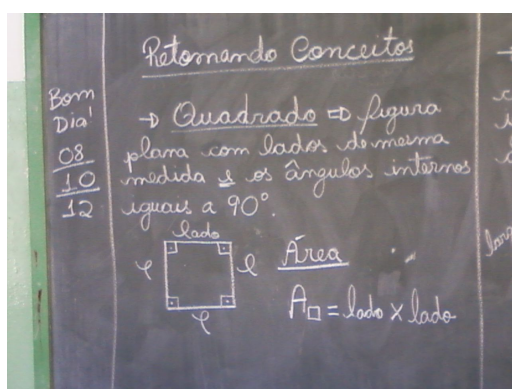 Retomando Conceitos
Bom
Dia!
08
10
12
→ Quadrado ⇒ figura
plana com lados de mesma
medida e os ângulos internos
iguais a 90°.
lado
l
l
l
Área
A□ = lado x lado